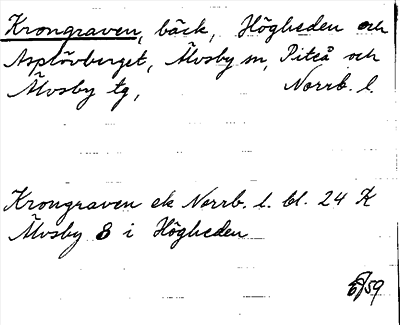 Krongraven, bäck, Högheden och
Asplövberget, Älvsby sn, Piteå och
Älvsby tg, Norrb. l.
Krongraven ek Norrb. l. bl. 24 K
Älvsby 8 i Högheden